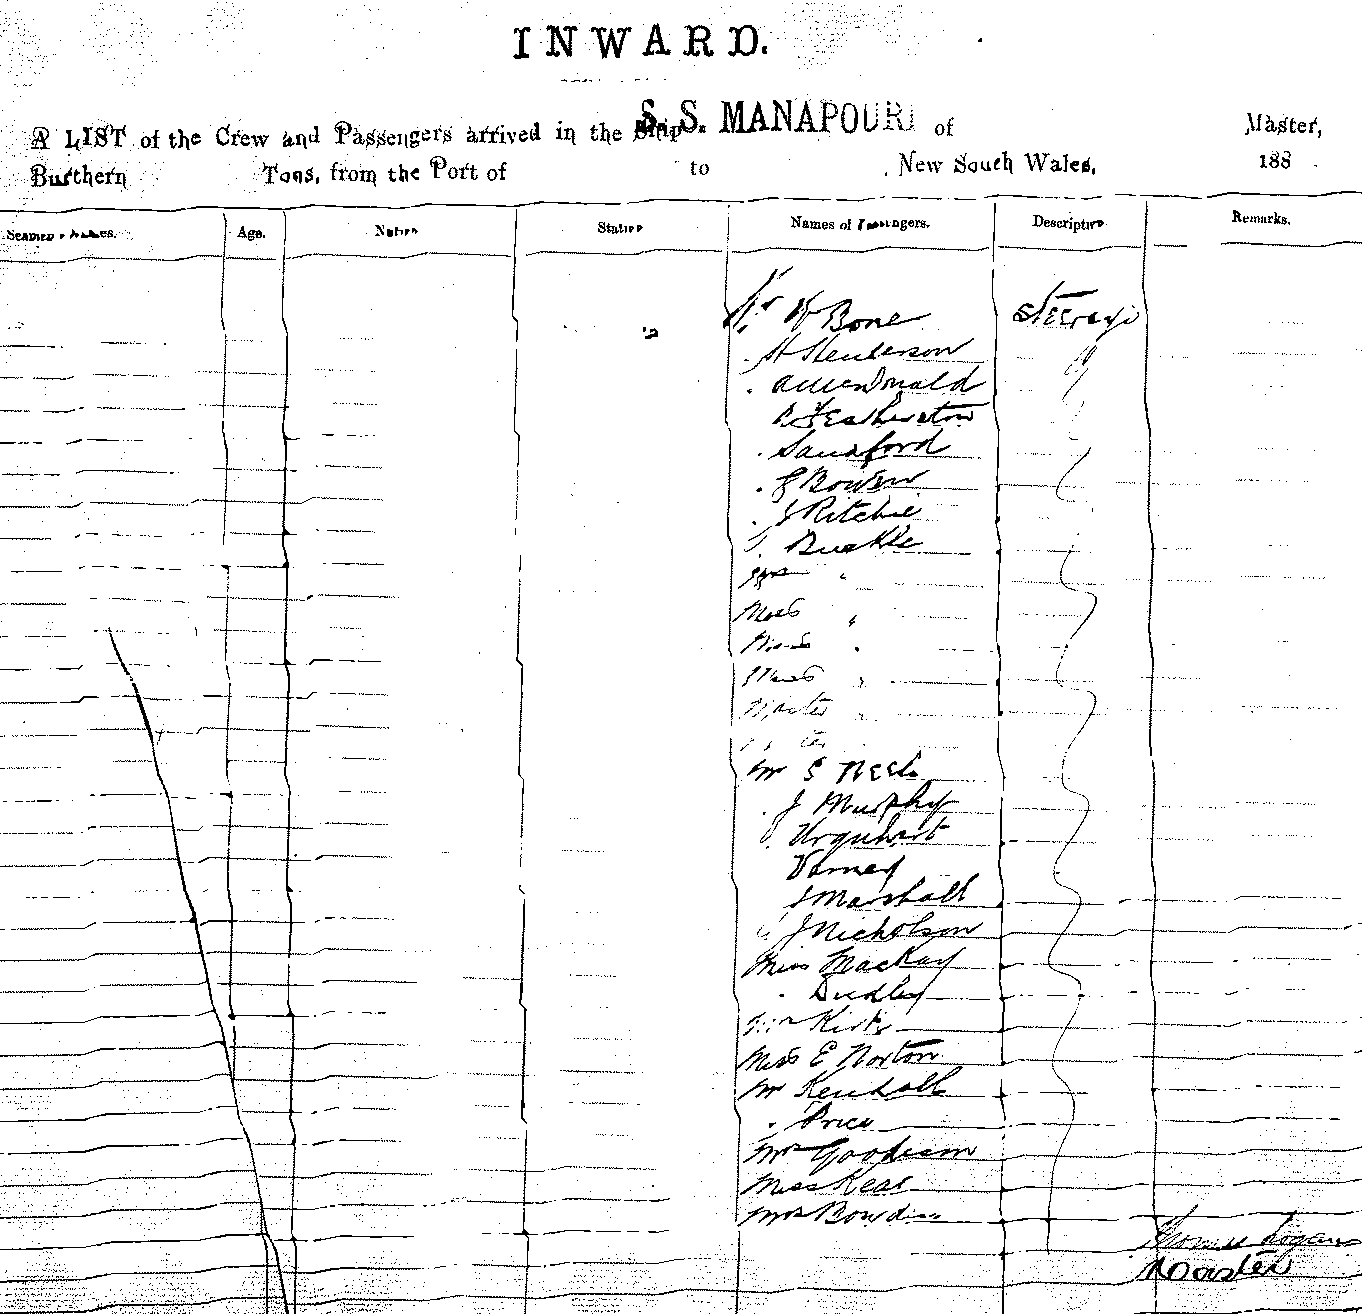 INWARD.
S. S. MANAPOURI
A LIST of the Crew and Passengers arrived in the Ship of Master,
Burthern Tons, from the Port of to New South Wales, 188
Seamen's Names. Age. Nation Station Names of Passengers. Descriptive Remarks.
Mr W Bone Steerage
H Henderson
A McDonald
Featherston
Sandford
G Bowen
J Ritchie
Buckle
Mrs "
Miss "
Miss "
Miss "
Master "
Mr S
J Murphy
Urquhart
Varney
J Marshall
J Nicholson
Miss Mackay
Dudley
Kirk
Miss E Norton
Mr Kendall
Price
Mrs Goodison
Miss Keal
Mrs
Thomas Logan
Master